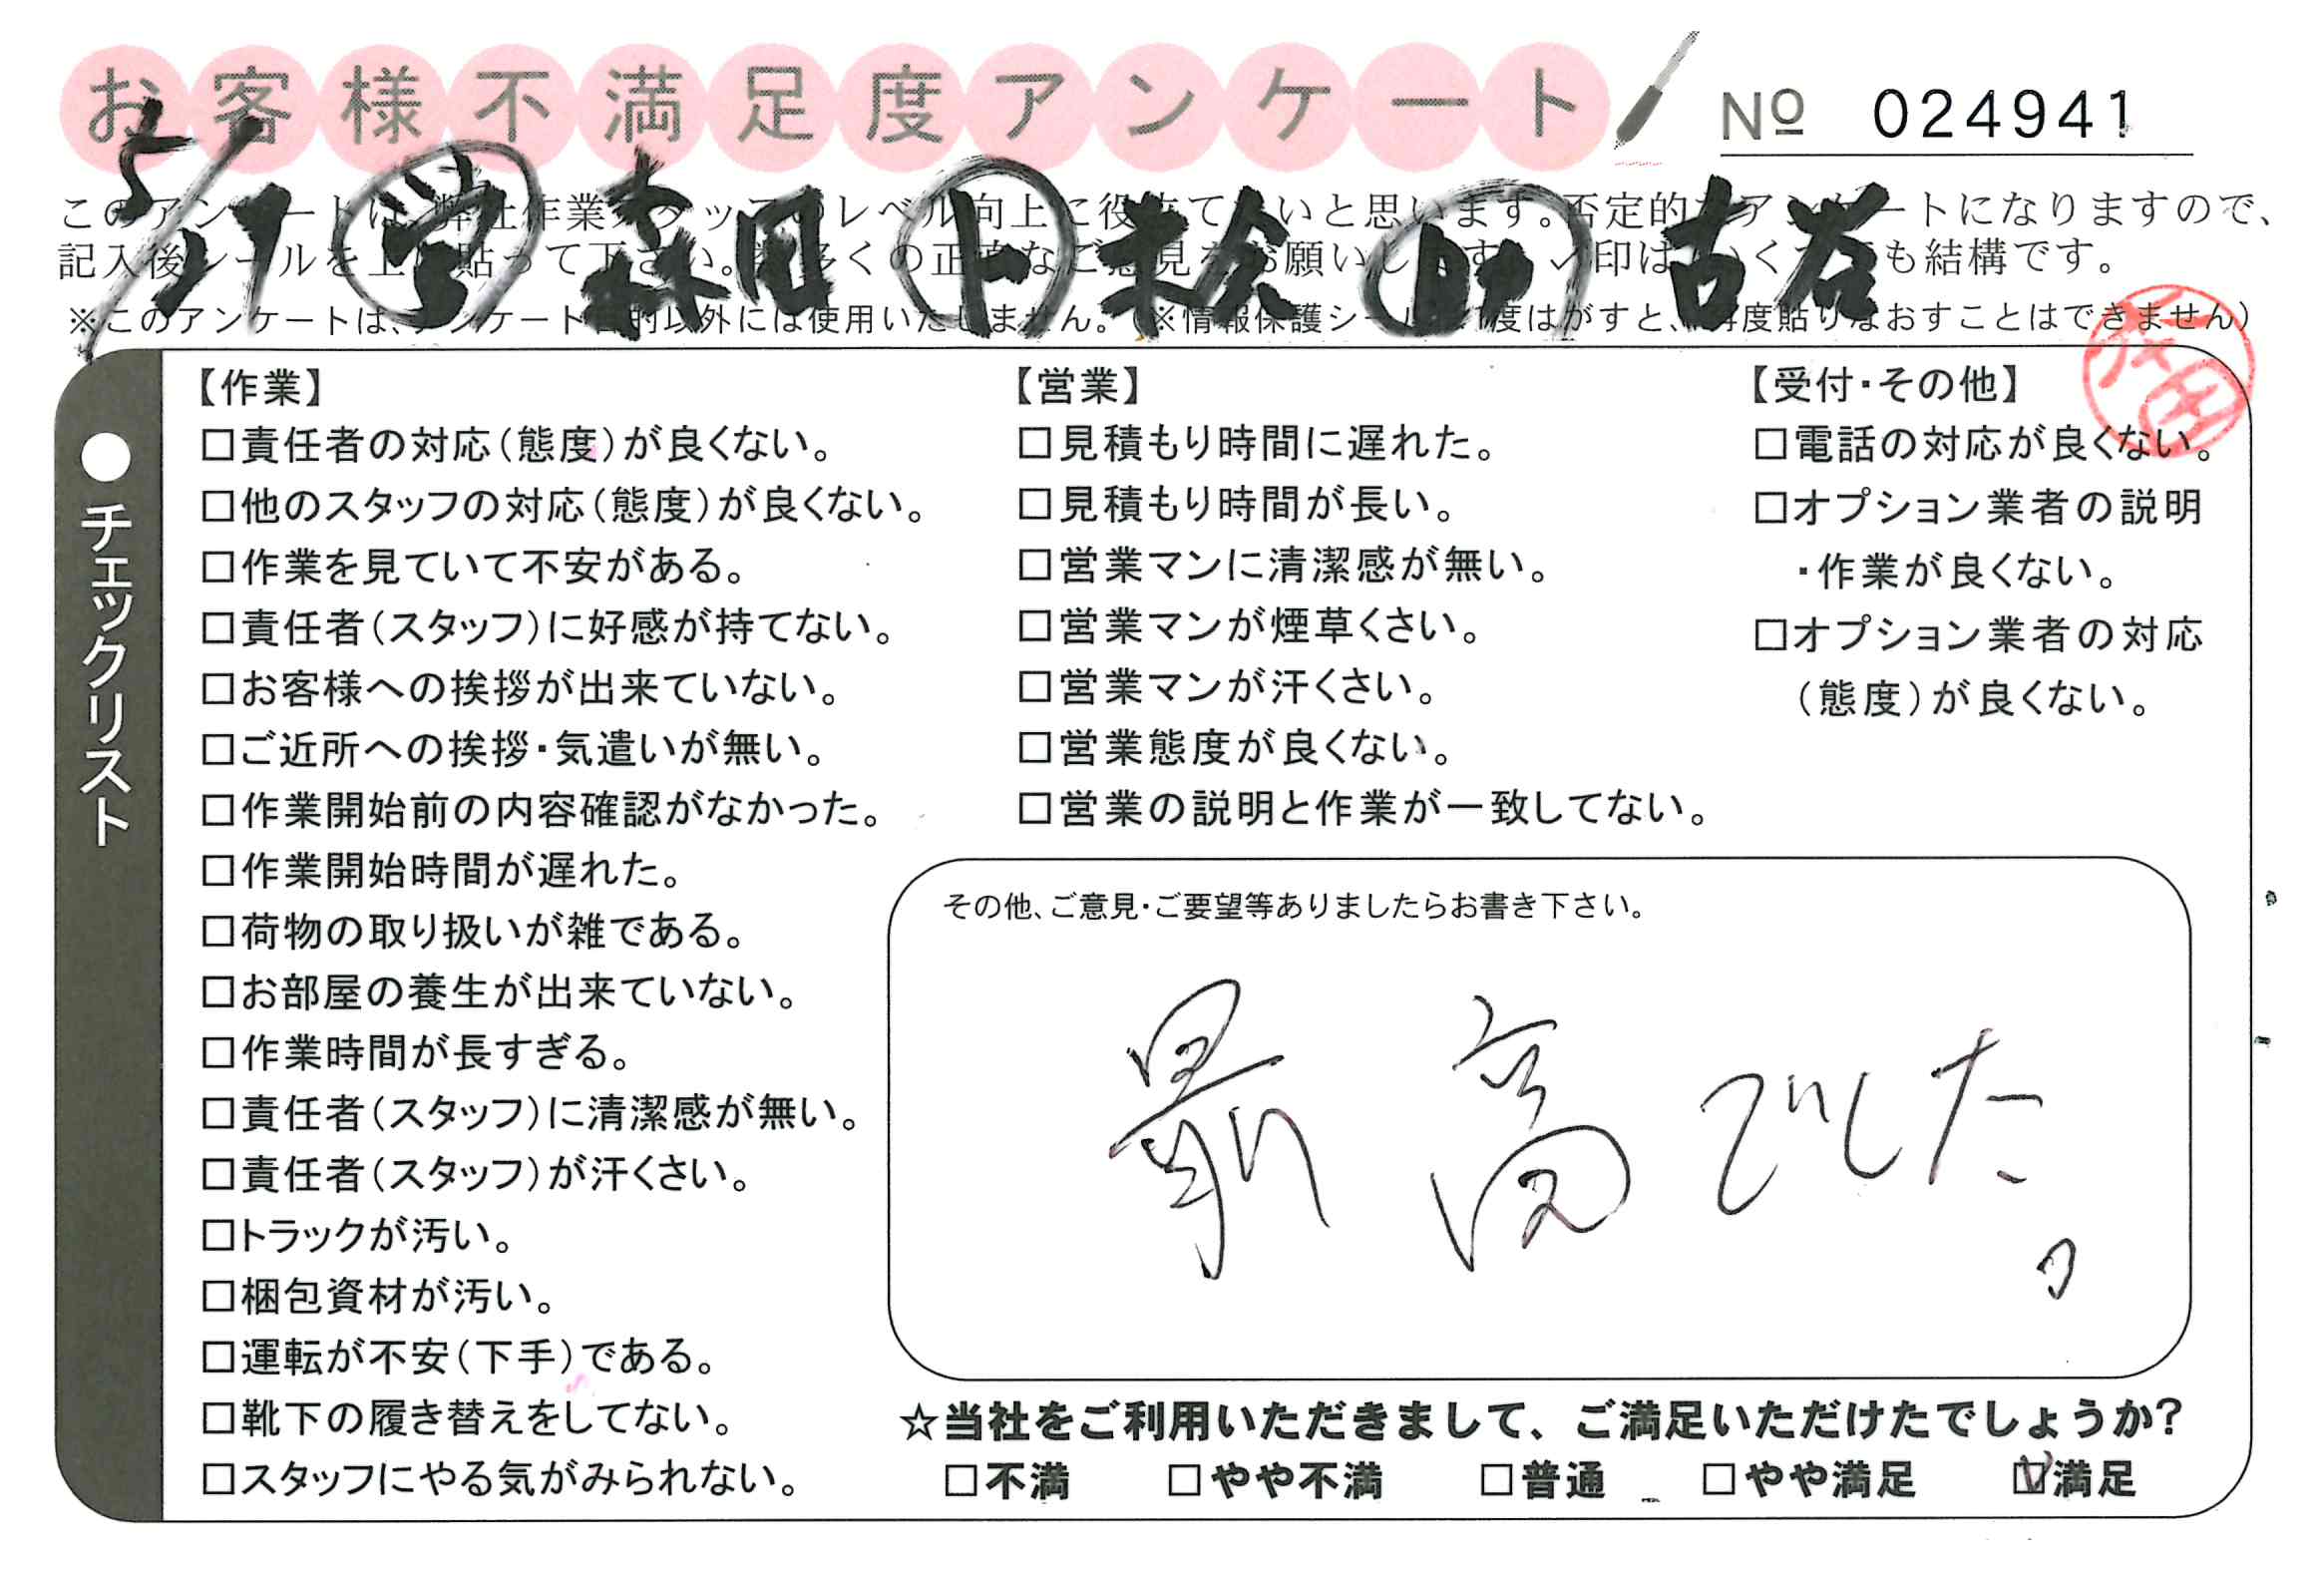 お客様不満足度アンケート No 024941
5/27 営 森田 ト 检 助 古谷
このアンケートは、弊社作業スタッフのレベル向上に役立てたいと思います。否定的なアンケートになりますので、
記入後シールを上に貼って下さい。数多くの正直なご意見をお願いします。レ印はいくつでも結構です。
※このアンケートは、アンケート目的以外には使用いたしません。(※情報保護シールは1度はがすと、再度貼りなおすことはできません)
●チェックリスト
【作業】
□責任者の対応(態度)が良くない。
□他のスタッフの対応(態度)が良くない。
□作業を見ていて不安がある。
□責任者(スタッフ)に好感が持てない。
□お客様への挨拶が出来ていない。
□ご近所への挨拶・気遣いが無い。
□作業開始前の内容確認がなかった。
□作業開始時間が遅れた。
□荷物の取り扱いが雑である。
□お部屋の養生が出来ていない。
□作業時間が長すぎる。
□責任者(スタッフ)に清潔感が無い。
□責任者(スタッフ)が汗くさい。
□トラックが汚い。
□梱包資材が汚い。
□運転が不安(下手)である。
□靴下の履き替えをしてない。
□スタッフにやる気がみられない。
【営業】
□見積もり時間に遅れた。
□見積もり時間が長い。
□営業マンに清潔感が無い。
□営業マンが煙草くさい。
□営業マンが汗くさい。
□営業態度が良くない。
□営業の説明と作業が一致してない。
【受付・その他】
□電話の対応が良くない。
□オプション業者の説明
・作業が良くない。
□オプション業者の対応
(態度)が良くない。
その他、ご意見・ご要望等ありましたらお書き下さい。
最高でした。
☆当社をご利用いただきまして、ご満足いただけたでしょうか?
□不満 □やや不満 □普通 □やや満足 ☑満足